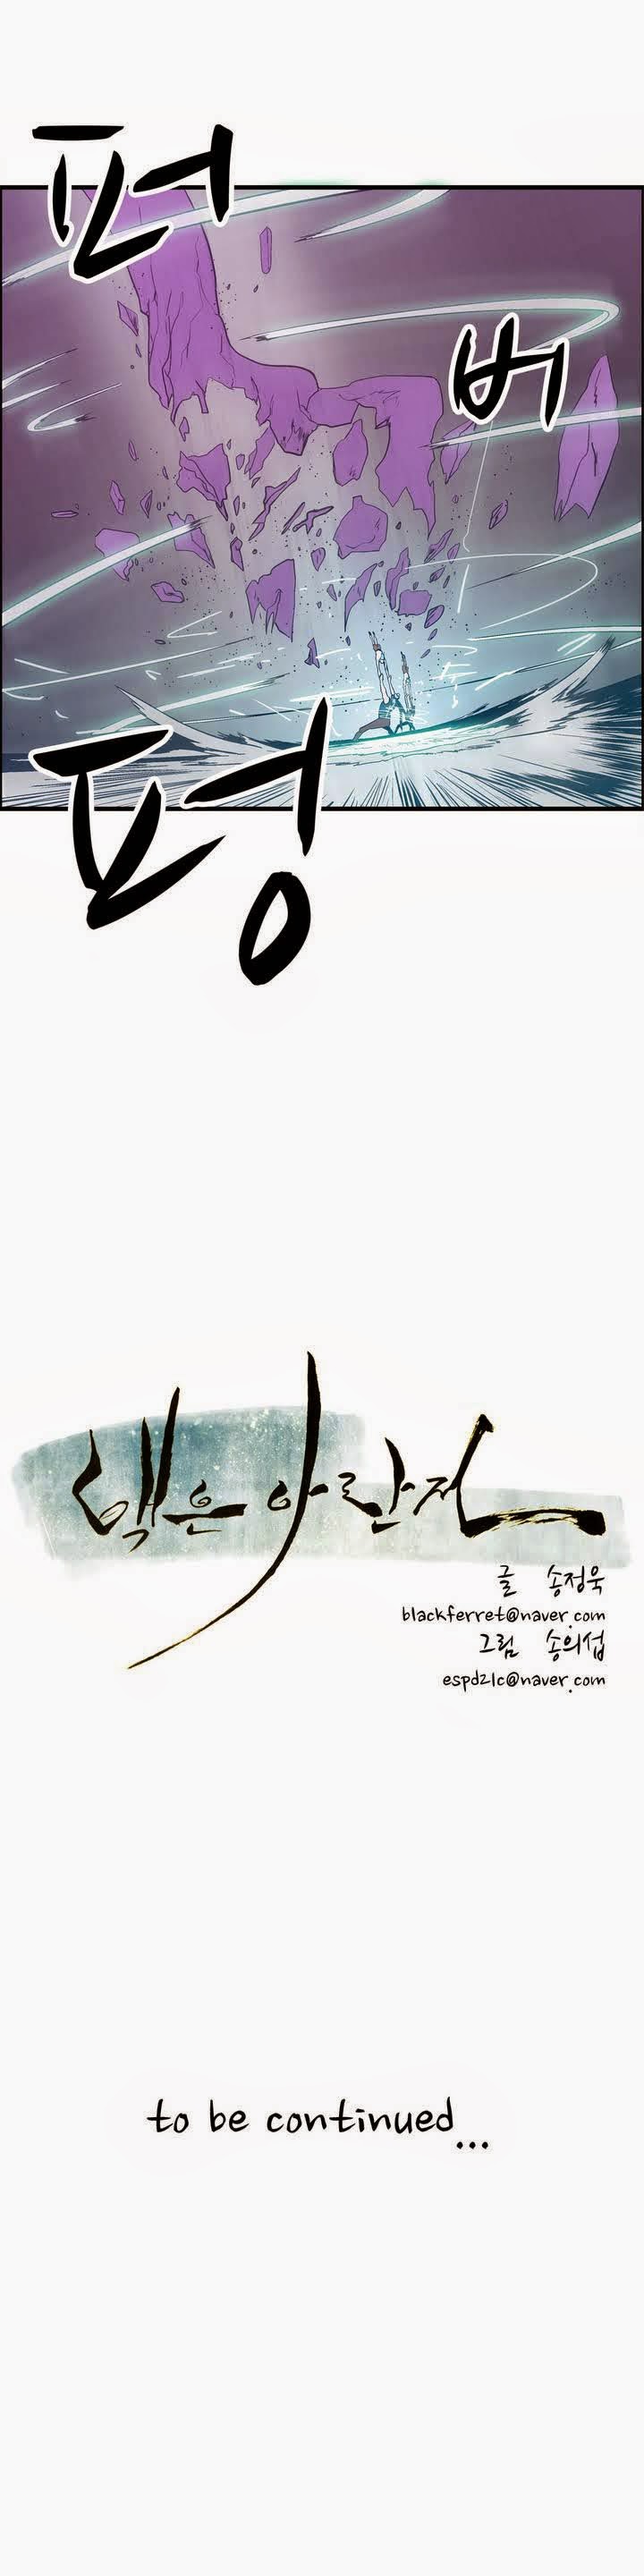 퍼
버
펑
맥은 아란전
글 송정욱
blackferret@naver.com
그림 송의섭
espd21c@naver.com
to be continued...